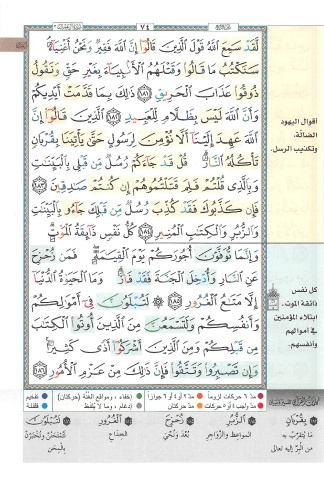 ٧٤
لَّقَدْ سَمِعَ اللَّهُ قَوْلَ الَّذِينَ قَالُوا إِنَّ اللَّهَ فَقِيرٌ وَنَحْنُ أَغْنِيَاءُ
سَنَكْتُبُ مَا قَالُوا وَقَتْلَهُمُ الْأَنبِيَاءَ بِغَيْرِ حَقٍّ وَنَقُولُ
ذُوقُوا عَذَابَ الْحَرِيقِ ١٨١ ذَٰلِكَ بِمَا قَدَّمَتْ أَيْدِيكُمْ
وَأَنَّ اللَّهَ لَيْسَ بِظَلَّامٍ لِّلْعَبِيدِ ١٨٢ الَّذِينَ قَالُوا إِنَّ
اللَّهَ عَهِدَ إِلَيْنَا أَلَّا نُؤْمِنَ لِرَسُولٍ حَتَّىٰ يَأْتِيَنَا بِقُرْبَانٍ
تَأْكُلُهُ النَّارُ قُلْ قَدْ جَاءَكُمْ رُسُلٌ مِّن قَبْلِي بِالْبَيِّنَاتِ
وَبِالَّذِي قُلْتُمْ فَلِمَ قَتَلْتُمُوهُمْ إِن كُنتُمْ صَادِقِينَ ١٨٣
فَإِن كَذَّبُوكَ فَقَدْ كُذِّبَ رُسُلٌ مِّن قَبْلِكَ جَاءُو بِالْبَيِّنَاتِ
وَالزُّبُرِ وَالْكِتَابِ الْمُنِيرِ ١٨٤ كُلُّ نَفْسٍ ذَائِقَةُ الْمَوْتِ
وَإِنَّمَا تُوَفَّوْنَ أُجُورَكُمْ يَوْمَ الْقِيَامَةِ فَمَن زُحْزِحَ
عَنِ النَّارِ وَأُدْخِلَ الْجَنَّةَ فَقَدْ فَازَ وَمَا الْحَيَاةُ الدُّنْيَا
إِلَّا مَتَاعُ الْغُرُورِ ١٨٥ لَتُبْلَوُنَّ فِي أَمْوَالِكُمْ
وَأَنفُسِكُمْ وَلَتَسْمَعُنَّ مِنَ الَّذِينَ أُوتُوا الْكِتَابَ
مِن قَبْلِكُمْ وَمِنَ الَّذِينَ أَشْرَكُوا أَذًى كَثِيرًا
وَإِن تَصْبِرُوا وَتَتَّقُوا فَإِنَّ ذَٰلِكَ مِنْ عَزْمِ الْأُمُورِ ١٨٦
أقوال اليهود
الضالة،
وتكذيب الرسل.
كل نفس
ذائقة الموت،
ابتلاء المؤمنين
في أموالهم
وأنفسهم.
مدّ ٦ حركات لزوماً
مدّ ٢ أو ٤ أو ٦ جوازاً
إخفاء، ومواقع الغُنَّة (حركتان)
تفخيم
مدّ واجب ٤ أو ٥ حركات
مدّ حركتان
إدغام، وما لا يُلفَظ
قلقلة
بِقُرْبَانٍ
وَالزُّبُرِ
زُحْزِحَ
الْغُرُورِ
لَتُبْلَوُنَّ
ما يُتقرَّب به
من البِرّ إليه تعالى
المواعظ والزّواجر
بُعِّدَ ونُحِّيَ
الخِداع
لَتُمْتَحَنُنَّ وتُخْتَبَرُنَّ
بالمِحَن